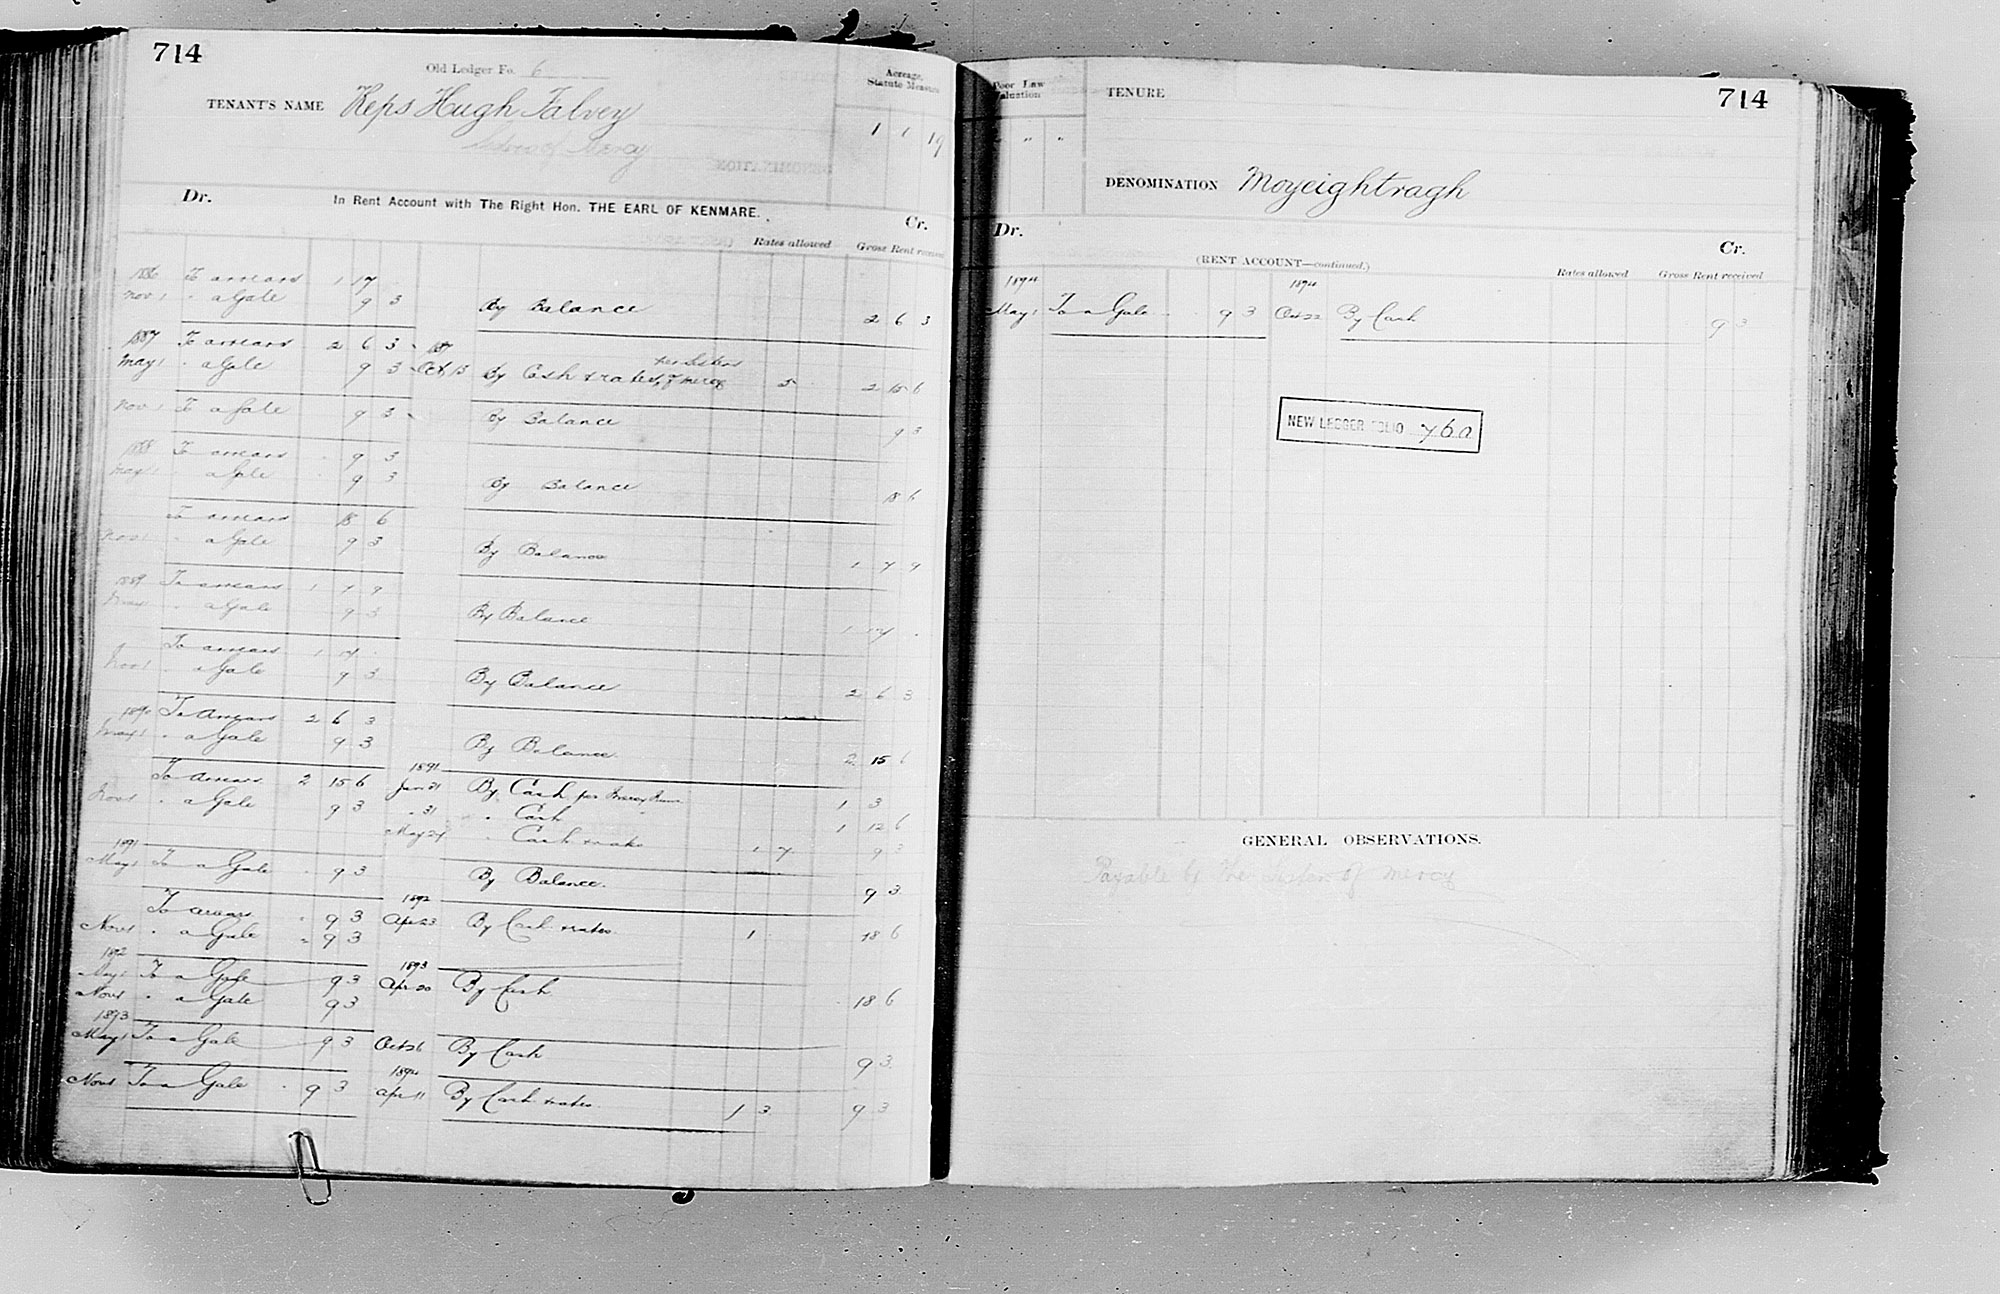 714
Old Ledger Fo. 6
Acreage,
Statute Measure
TENANT'S NAME Reps Hugh Falvey
Sisters of Mercy
1 1 19
Dr. In Rent Account with The Right Hon. THE EARL OF KENMARE. Cr.
Rates allowed Gross Rent received
1886 To arrears 1 17
Nov 1 " a Gale 9 3 By Balance 2 6 3
1887 To arrears 2 6 3 1887
May 1 " a Gale 9 3 Oct 15 By Cash & rates, per Sisters of Mercy 5 2 15 6
Nov 1 To a Gale 9 3 By Balance 9 3
1888 To arrears 9 3
May 1 " a Gale 9 3 By Balance 18 6
To arrears 18 6
Nov 1 " a Gale 9 3 By Balance 1 7 9
1889 To arrears 1 7 9
May 1 " a Gale 9 3 By Balance 1 17
To arrears 1 17
Nov 1 " a Gale 9 3 By Balance 2 6 3
1890 To Arrears 2 6 3
May 1 " a Gale 9 3 By Balance 2 15 6
1891
To Arrears 2 15 6 Jan 31 By Cash per 1 3
Nov 1 " a Gale 9 3 " 31 " Cash 1 12 6
May 24 " Cash & rates 1 7 9 3
1891
May 1 To a Gale 9 3 By Balance. 9 3
1892
To arrears 9 3 Apr 23 By Cash & rates. 1 18 6
Nov 1 " a Gale 9 3
1892 1893
May 1 To a Gale 9 3 Apr 20 By Cash 18 6
Nov 1 " a Gale 9 3
1893
May 1 To a Gale 9 3 Oct 26 By Cash 9 3
1894
Nov 1 To a Gale 9 3 Apr 11 By Cash & rates. 1 3 9 3
Poor Law
Valuation
" " "
TENURE
714
DENOMINATION Moyeightragh
Dr. Cr.
(RENT ACCOUNT—continued.)
Rates allowed Gross Rent received
1894 1894
May 1 To a Gale 9 3 Oct 22 By Cash 9 3
NEW LEDGER FOLIO 760
GENERAL OBSERVATIONS.
Payable by the Sisters of Mercy